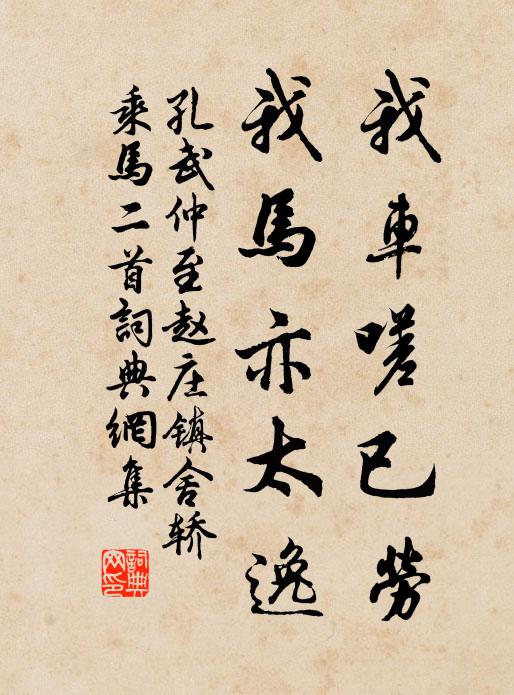 我車嗟已勞
我馬亦太逸
孔武仲至赵庄镇舍轿
乘馬二首詞典網集
詞典网印